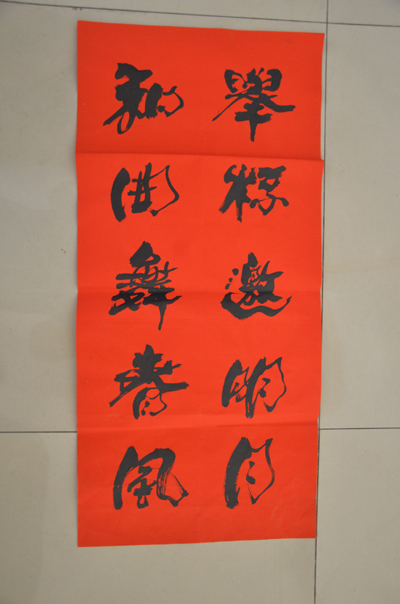 舉杯邀明月
曲舞春風